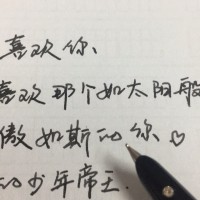 喜欢你、
喜欢那个如太阳般
傲如斯的你♡
的少年帝王.